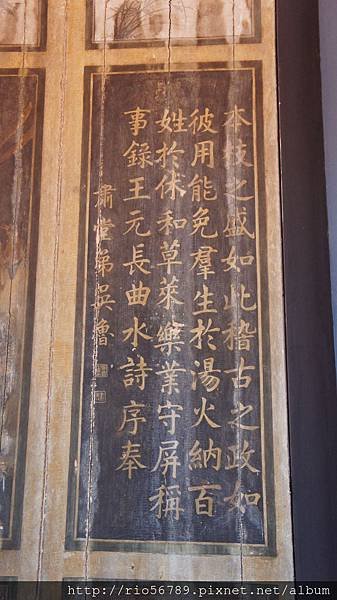 本枝之盛如此稽古之政如
彼用能免羣生於湯火納百
姓於休和草萊樂業守屏稱
事錄王元長曲水詩序奉
肅堂弟吳魯
http://rio56789.pixnet.net/album